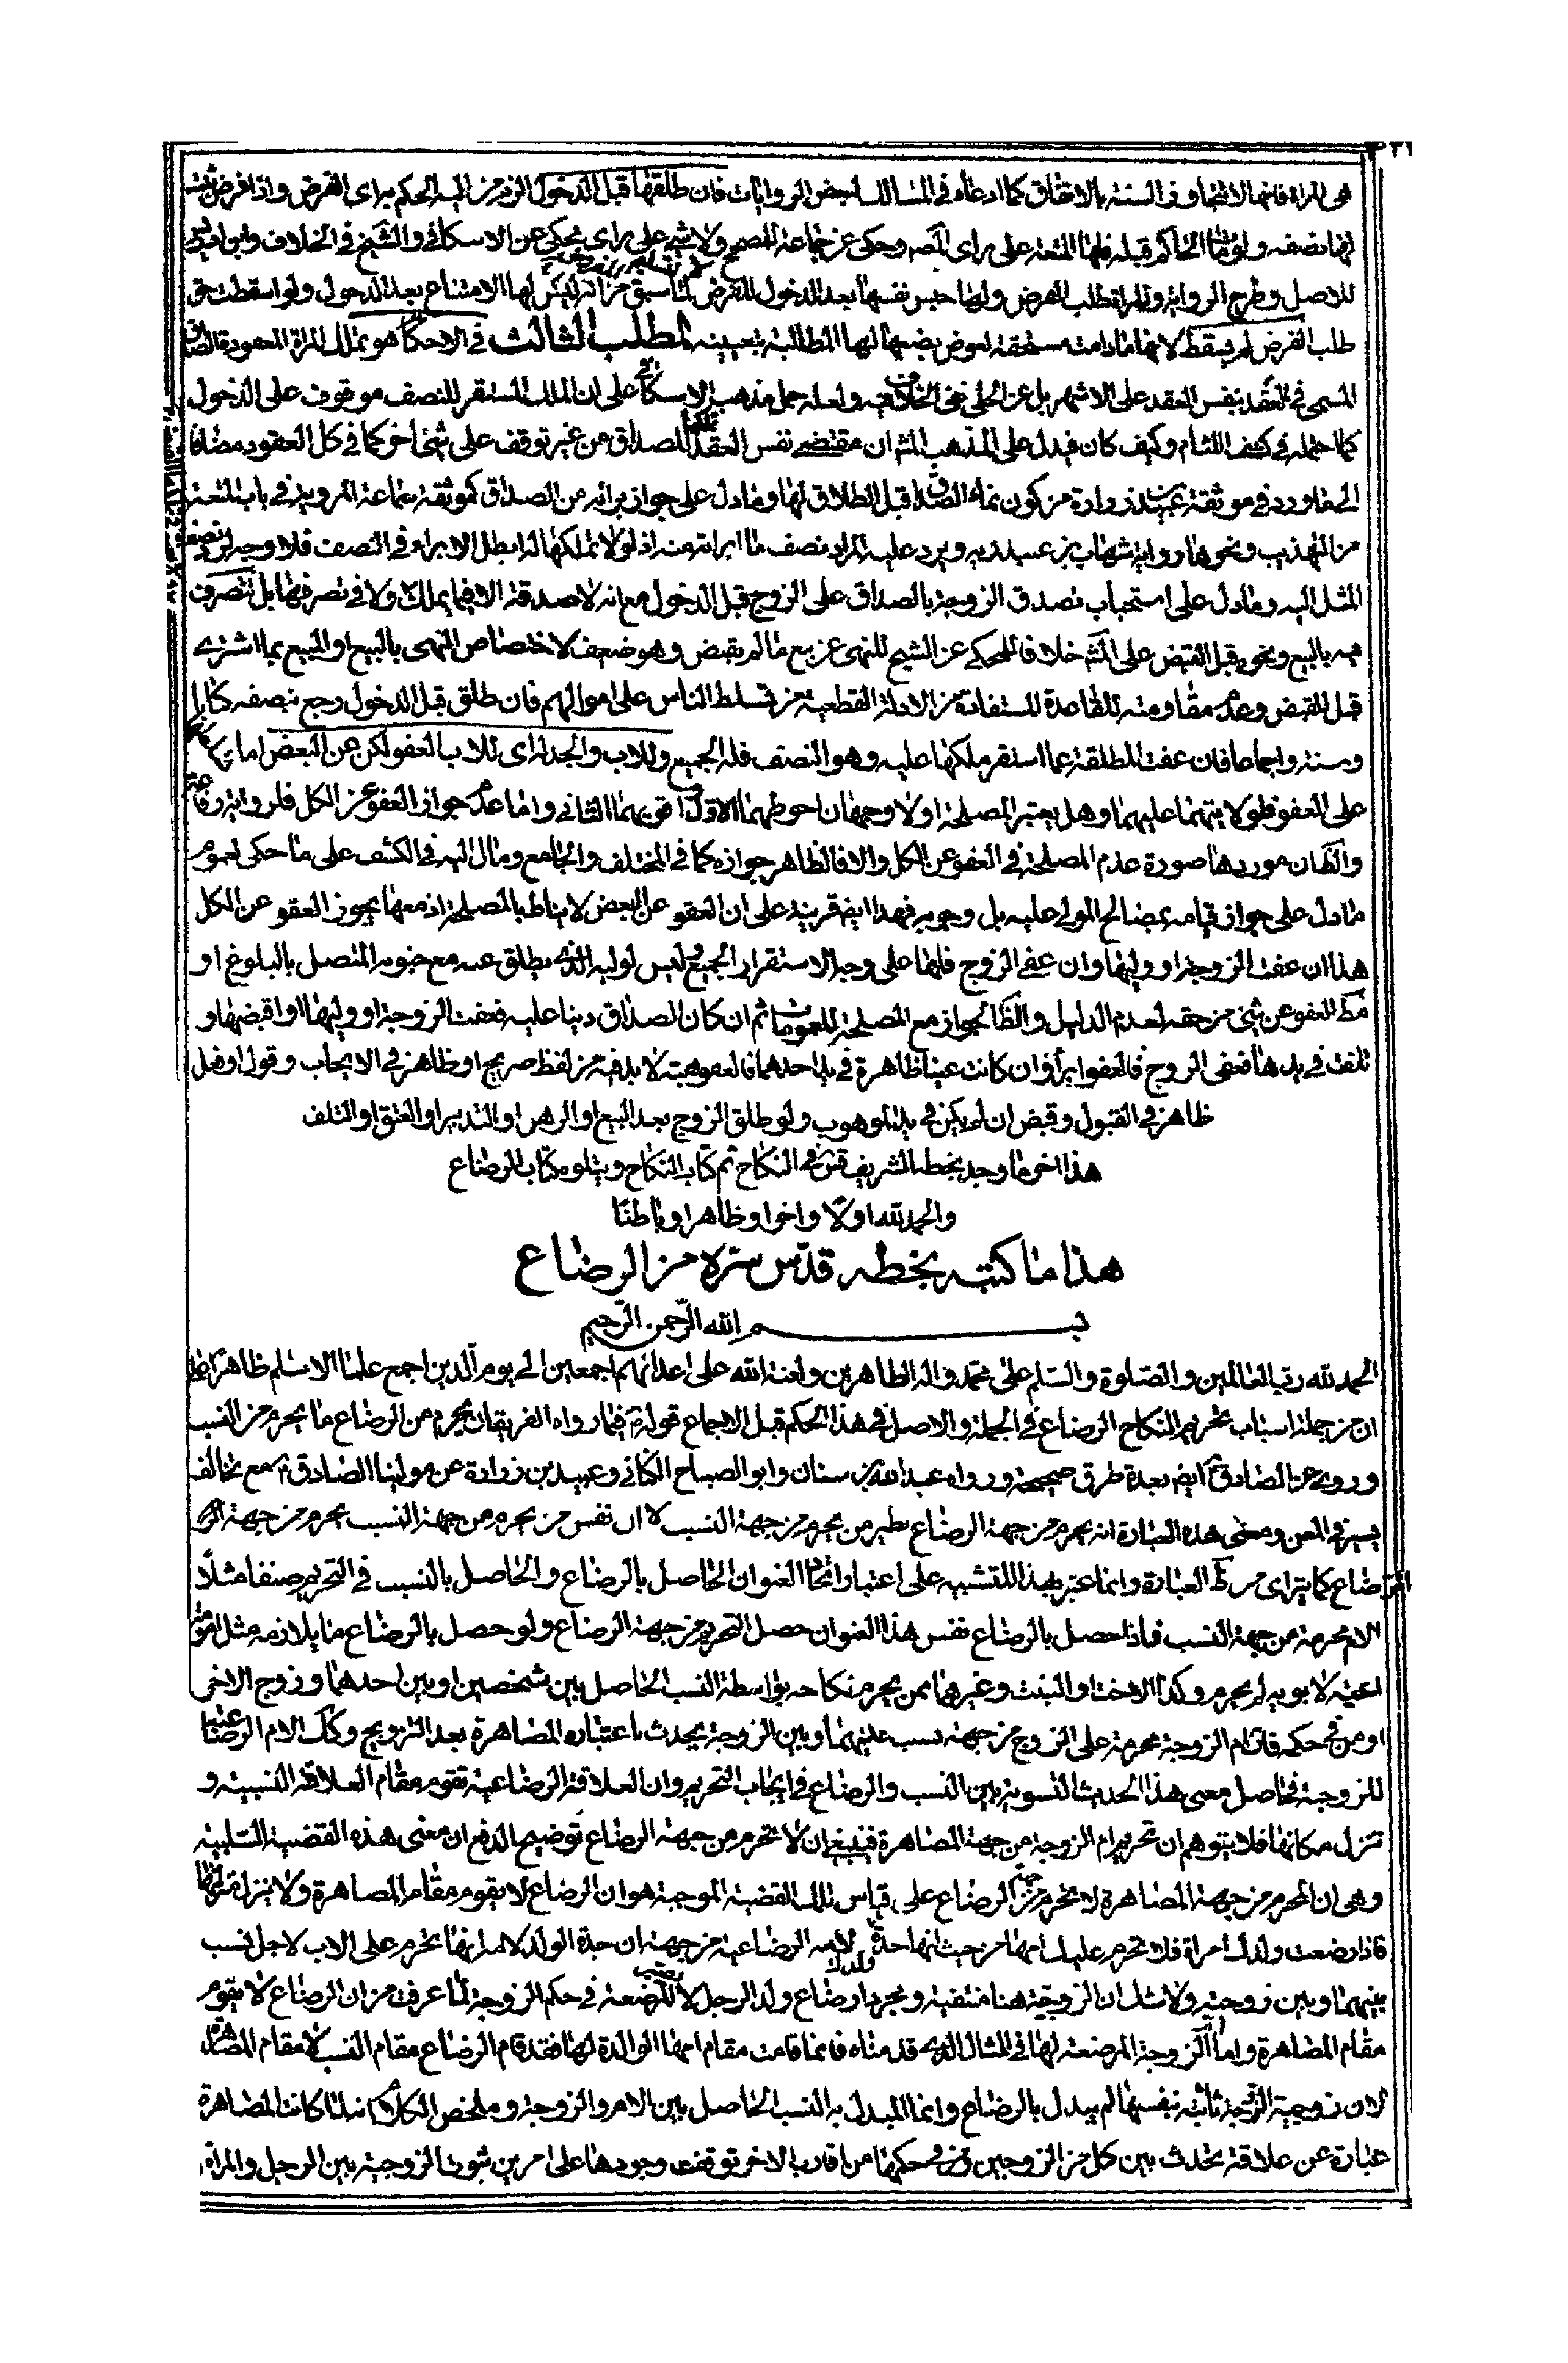 هى المراة فانها لاتتجاوز السنة بالاتفاق كما ادعاه فى المسالك لبعض الروايات فان طلقها قبل الدخول الزم من اليه الحكم براى الفرض واذا فرض ثبت
لها نصفه ولو مات الحاكم قبله فلها المتعة على راى وحكى عن جماعة المصحح ولا شىء على راى يحكى عن الاسكافى والشيخ فى الخلاف وابن ادريس
للاصل وطرح الرواية وللمراة طلب الفرض ولها حبس نفسها بعد الدخول للفرض لما سبق من انه ليس لها الامتناع بعد الدخول ولو اسقطت حق
طلب الفرض لم يسقط لانها مادامت مستحقة لعوض بضعها لها المطالبة بتعيينه المطلب الثالث فى الاحكام هو تملك المراة المعقودة الصداق
المسمى فى العقد بنفس العقد على الاشهر بل عن الحلى نفى الخلاف فيه ولعله حمل مذهب الاسكافى على ان الملك المستقر للنصف موقوف على الدخول
كما احتمله فى كشف اللثام وكيف كان فيدل على المذهب المش ان مقتضى نفس العقد تملكها للصداق من غير توقف على شئ اخر كما فى كل العقود مضافا
الى ما ورد فى موثقة عبيد بن زرارة من كون نماء الصداق قبل الطلاق لها وما دل على جواز برائه من الصداق كموثقة سماعة المروية فى باب المتعة
من التهذيب ونحوها رواية شهاب بن عبد ربه ويرد عليه المراد نصف ما ابراته منه اذ لو لا تملكها له لبطل الابراء فى النصف فلا وجه لرد نصف
المثل اليه وما دل على استحباب تصدق الزوجة بالصداق على الزوج قبل الدخول مع انه لا صدقة الا فيما يملك ولا فى تصرفها بل تتصرف
فيه بالبيع ونحوه قبل القبض على المش خلافا للمحكى عن الشيخ للنهى عن بيع ما لم يقبض وهو ضعيف لاختصاص النهى بالبيع او المبيع بما اشترى
قبل القبض وعدم مقاومته للقاعدة المستفادة من الادلة القطعية من تسلط الناس على اموالهم فان طلق قبل الدخول رجع بنصفه كتابا
وسنة واجماعا فان عفت المطلقة عما استقر ملكها عليه وهو النصف فله الجميع وللاب والجد له اى للاب العفو لكن عن البعض اما
على العفو فلولايتهما عليهما وهل يعتبر المصلحة اولا وجهان احوطهما الاول اقويهما الثانى واما عدم جواز العفو عن الكل فلرواية رفاعة
والظان موردها صورة عدم المصلحة فى العفو عن الكل والا فالظاهر جوازه كما فى المختلف والجامع ومال اليه فى الكشف على ما حكى لعموم
ما دل على جواز قيامه بمصالح المولى عليه بل وجوبه فهذا ايضا قرينة على ان العفو عن البعض لا يناط بالمصلحة اذ معها يجوز العفو عن الكل
هذا ان عفت الزوجة او وليها وان عفى الزوج فلها على وجه الاستقرار الجميع وليس لوليه الذى يطلق عنه مع جنونه المتصل بالبلوغ او
مط العفو عن شئ من حقه لعدم الدليل والظ الجواز مع المصلحة للعمومات ثم ان كان الصداق دينا عليه فعفت الزوجة او وليها او اقبضها و
تلفت فى يدها فعفى الزوج فالعفو ابراء وان كانت عينا ظاهرة فى يد احدهما فالعفو هبة لا بد فيه من لفظ صريح او ظاهر فى الايجاب وقول او فعل
ظاهر فى القبول وقبض ان لم يكن فى يد الموهوب ولو طلق الزوج بعد البيع او الرهن او التدبير او العتق او التلف
هذا اخر ما وجد بخطه الشريف قدس فى النكاح تم كتاب النكاح ويتلوه كتاب الرضاع
والحمد لله اولا واخرا وظاهرا وباطنا
هذا ما كتبه بخطه قدس سره من الرضاع
بسم الله الرحمن الرحيم
الحمد لله رب العالمين والصلوة والسلم على محمد واله الطاهرين ولعنة الله على اعدائهم اجمعين الى يوم الدين اجمع علماء الاسلم ظاهرا على
ان من جملة اسباب تحريم النكاح الرضاع فى الجملة والاصل فى هذا الحكم قبل الاجماع قوله ص فيما رواه الفريقان يحرم من الرضاع ما يحرم من النسب
وروى عن الصادق ع ايضا بعدة طرق صحيحة ورواه عبدالله بن سنان وابو الصباح الكنانى وعبيد بن زرارة عن مولينا الصادق ع مع تخالف
يسير فى المتن ومعنى هذه العبارة انه يحرم من جهة الرضاع نظير من يحرم من جهة النسب لا ان نفس من يحرم من جهة النسب يحرم من جهة
الرضاع كما يتراى من ظ العبارة وانما عبر بهذا للتشبيه على اعتبار اتحاد العنوان الحاصل بالرضاع والحاصل بالنسب فى التحريم صنفا مثلا
الام محرمة من جهة النسب فاذا حصل بالرضاع نفس هذا العنوان حصل التحريم من جهة الرضاع ولو حصل بالرضاع ما يلازمه مثل امومة
اخيه لابويه لم يحرم وكذا الاخت او البنت وغيرهما ممن يحرم نكاحه بواسطة النسب الحاصل بين شخصين او بين احدهما وزوج الاخر
او من فى حكمه فان ام الزوجة محرمة على الزوج من جهة نسب عليهما وبين الزوجة يحدث باعتباره المصاهرة بعد التزويج وكك الام الرضاعية
للزوجة فحاصل معنى هذا الحديث التسوية بين النسب والرضاع فى ايجاب التحريم وان العلاقة الرضاعية تقوم مقام العلاقة النسبية و
تنزل مكانها فلا يتوهم ان تحريم ام الزوجة من جهة المصاهرة فينبغى ان لا تحرم من جهة الرضاع توضيح الدفع ان معنى هذه القضية السلبية
وهى ان المحرم من جهة المصاهرة لا يحرم من جهة الرضاع على قياس تلك القضية الموجبة هو ان الرضاع لا يقوم مقام المصاهرة ولا ينزل منزلتها
فاذا رضعت ولدك امراة فلا تحرم عليك امها من حيث انها جدة ولدك لامه الرضاعية من جهة ان جدة الولد لامه انما تحرم على الاب لاجل نسب
بينهما وبين زوجيته ولا شك ان الزوجية هنا منتفية ومجرد ارضاع ولد الرجل لا يصير المرضعة فى حكم الزوجة لما عرفت من ان الرضاع لا يقوم
مقام المصاهرة واما ام الزوجة المرضعة لها فى المثال الذى قدمناه فانما قامت مقام امها الوالدة لها فقد قام الرضاع مقام النسب لا مقام المصاهرة
لان زوجية الزوجة ثابتة بنفسها لم يبدل بالرضاع وانما المبدل به النسب الحاصل بين الام والزوجة وملخص الكلام انه لما كانت المصاهرة
عبارة عن علاقة تحدث بين كل من الزوجين ومن فى حكمها من اقارب الاخر توقفت وجودها على امرين ثبوت الزوجية بين الرجل والمراة